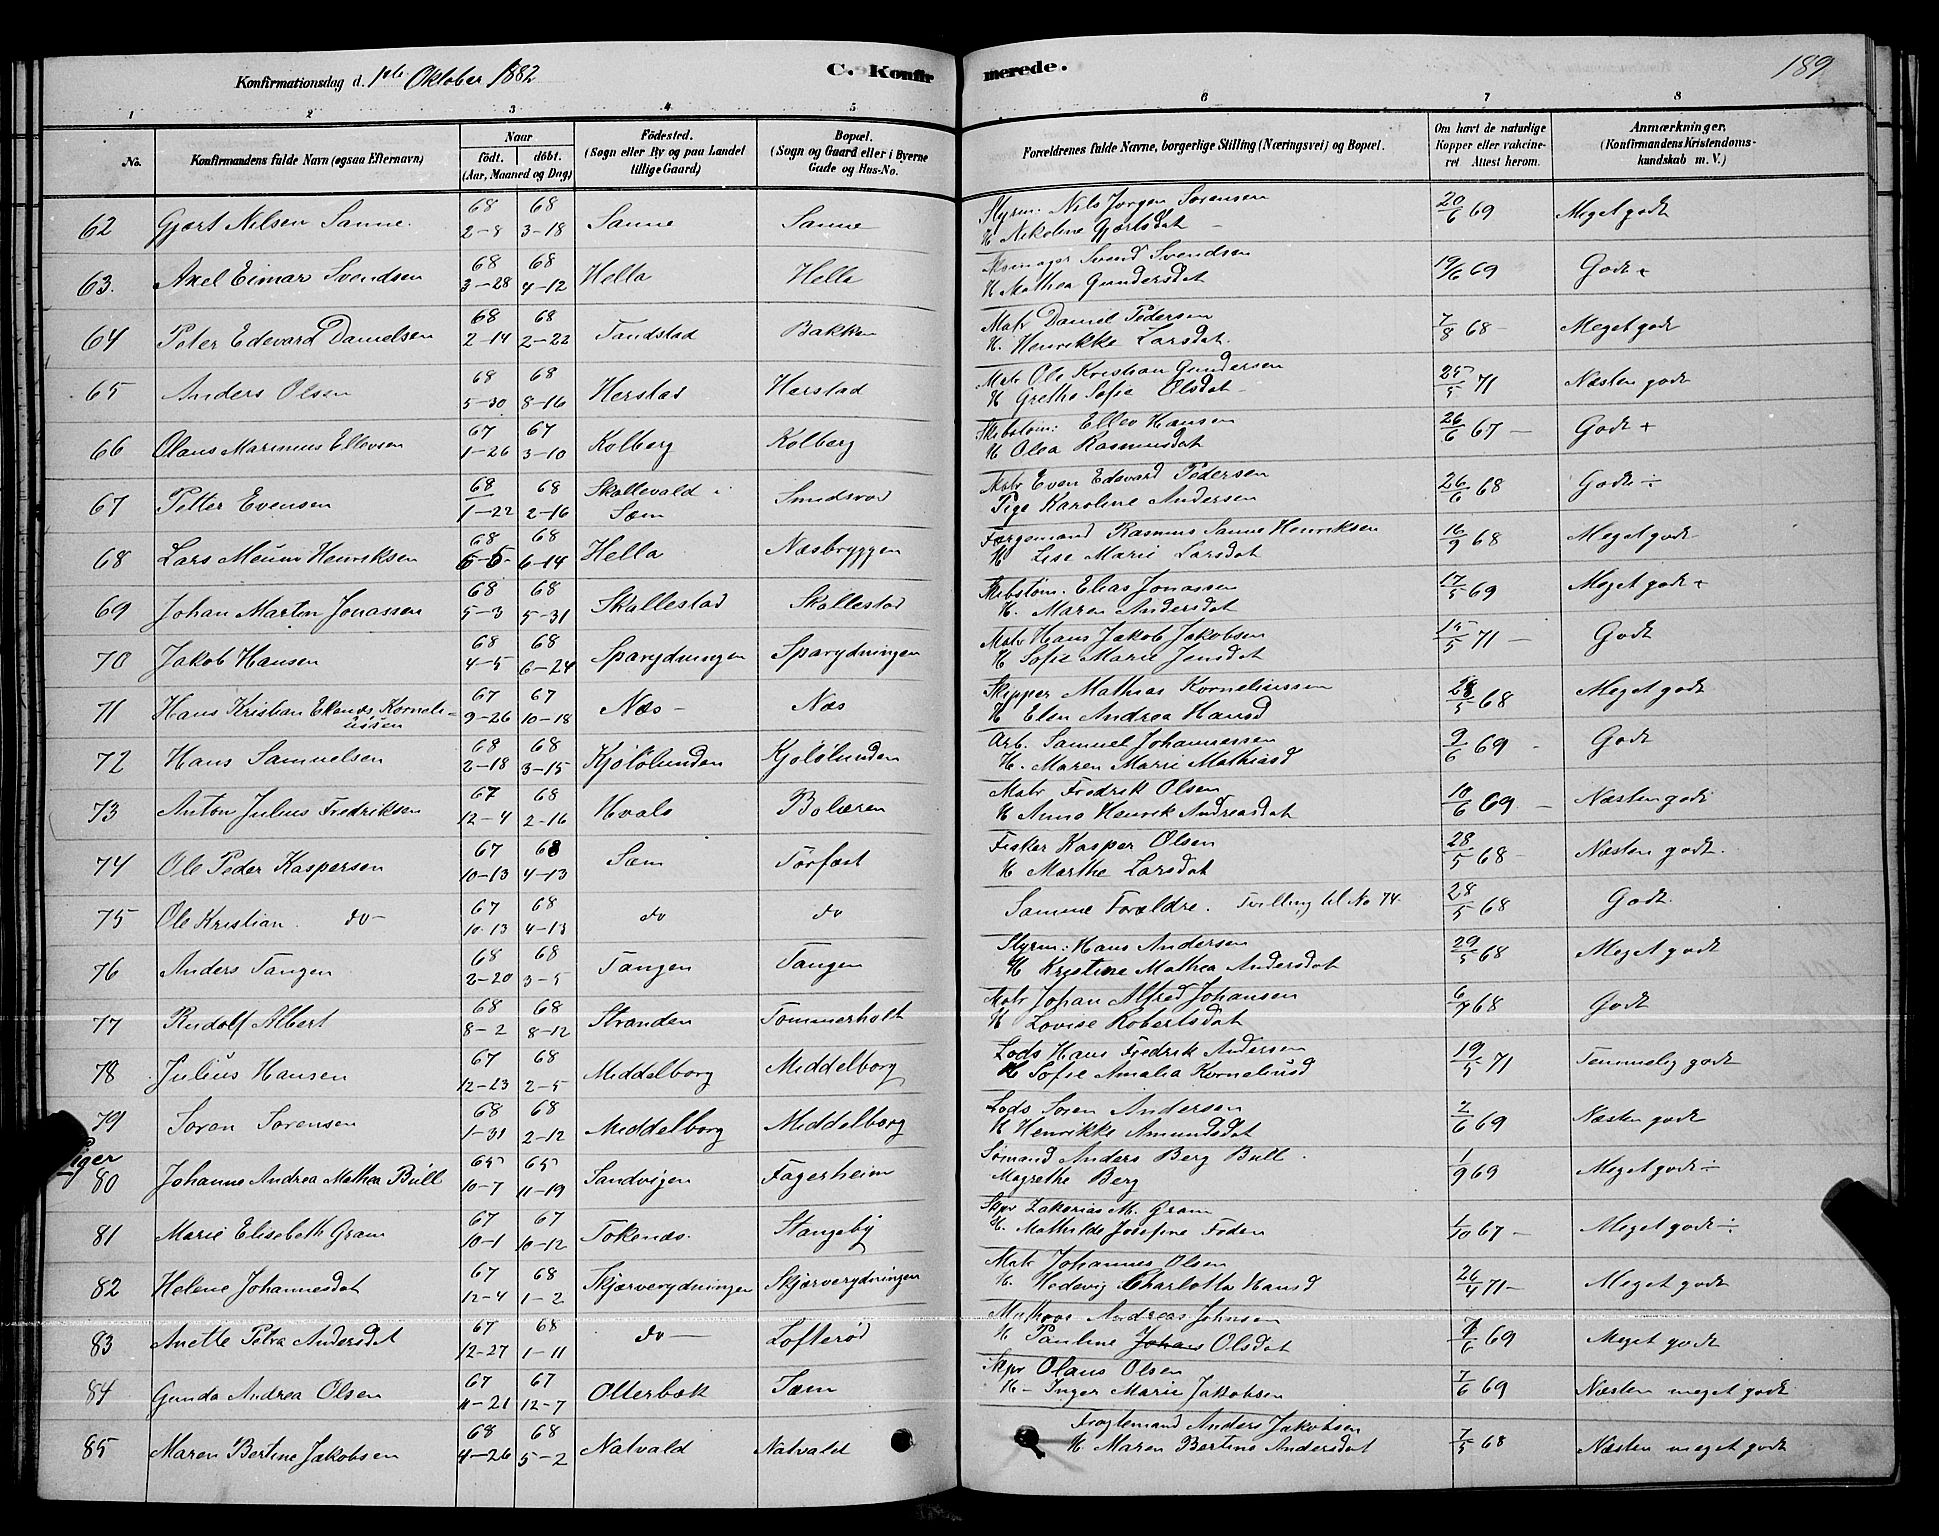 Konfirmationsdag d. 1ste Oktober 1882
C. Konfir merede.
189
1 2 3 4 5 6 7 8
No. Konfirmandens fulde Navn (ogsaa Efternavn) Naar födt. döbt. (Aar, Maaned og Dag) Födested. (Sogn eller By og paa Landet tillige Gaard) Bopæl. (Sogn og Gaard eller i Byerne Gade og Hus-No. Forældrenes fulde Navne, borgerlige Stilling (Næringsvei) og Bopæl. Om havt de naturlige Kopper eller vakcineret Attest herom. Anmærkninger, (Konfirmandens Kristendomskundskab m. V.)
62 Gjært Nilsen Sanne. 68 2-8 68 3-18 Sanne Sanne Styrm: Nils Jörgen Sörensen H Nikoline Gjærtsdat 20/6 69 Meget godt
63. Axel Eimar Svendsen 68 3-28 68 4-12 Hella Hella Svend Svendsen H Mathea Gundersdat 19/6 69 Godt +
64 Peter Edevard Danielsen 68 2-14 68 2-22 Tandstad Bakken Matr Daniel Pedersen H. Henrikke Larsdat. 7/8 68 - Meget godt
65 Anders Olsen 68 5-30 68 8-16 Herstad Herstad Matr Ole Kristian Gundersen H Grethe Sofie Olsdat 25/5 71 Næsten godt
66 Olaus Marinius Ellevsen 67 1-26 67 3-10 Kolberg Kolberg Skibstöm: Ellev Hansen H Olea Rasmusdat 26/6 67 - Godt +
67 Petter Evensen 68 1-22 68 2-16 Skallevald i Sæm Smidsrød Matr Even Edevard Pedersen Pige Karoline Andersen 26/6 68 Godt ÷
68 Lars Meum Henriksen 68 6-5- 68 6-14 Hella Næsbryggen Færgemand Rasmus Sanne Henriksen H Lise Marie Larsdat 16/9 68 Meget godt
69 Johan Martin Jonassen 68 5-3 68 5-31 Skallestad Skallestad Skibstöm. Elias Jonassen H. Maren Andersdat 17/5 69 Meget godt +
70 Jakob Hansen 68 4-5 68 6-24 Sparrydningen Sparrydningen Matr Hans Jakob Jakobsen H Sofie Marie Jensdat 15/5 71 - Godt
71 Hans Kristian Ekenæs Korneliussen 67 9-26 67 10-18 Næs - Næs Skipper Mathias Korneliussen H Elen Andrea Hansd 28/5 68 Meget godt
72 Hans Samuelsen 68 2-18 68 3-15 Kjölölunden Kjölölunden Arb. Samuel Johannessen H. Maren Marie Mathiasd 9/6 69 - Godt
73 Anton Julius Fredriksen 67 12-4 68 2-16 Hvalö Bolæren Matr Fredrik Olsen H Anne Henrik Andreasdat 10/6 69. - Næsten godt
74 Ole Peder Kaspersen 67 10-13 68 4-13 Sæm Torfæst Fisker Kasper Olsen H Marthe Larsdat 28/5 68 - Næsten godt.
75 Ole Kristian. do- 67 10-13 68 4-13 do do Samme Forældre. Tvilling til No 74. 28/5 68 Godt.
76 Anders Tangen 68 2-20 68 3-5 Tangen Tangen Styrm: Hans Andersen H Kristine Mathea Andersdat 29/5 68 Meget godt
77 Rudolf Albert 68 8-2 68 8-12 Stranden Tømmerholt Matr Johan Alfred Johansen H Lovise Robertsdat 68 Godt
78 Julius Hansen 67 12-23 68 2-5 Middelborg Middelborg Lods Hans Fredrik Andersen H Sofie Amalia Korneliusd 19/5 71 Temmelig godt
79 Sören Sörensen 68 1-31 68 2-12 Middelborg Middelborg Lods Sören Andersen H Henrikke Amundsdat 2/6 69 Næsten godt
Piger
80 Johanne Andrea Mathea Bull 65 10-7 65 11-19 Sandvigen Fagerheim Sömand Anders Berg Bull. Magrethe Berg 1/9 69 Meget godt ÷
81 Marie Elisebeth Gram 67 10-1 67 10-12 Tokenæs. Stangeby Skpr Zakarias M. Gram H. Mathilde Josefine Foden 1/10 67 - Meget godt ÷
82 Helene Johannesdat 67 12-4 68 1-2 Skjærverydningen Skjærverydningen Matr Johannes Olsen H. Hedevig Charlotte Hansd 26/4 71 - Meget godt
83 Anette Petra Andersdt 67 12-27 68 1-11 do - Lofteröd Andreas Johnsen H Pauline Johans Olsdat 7/6 69 Meget godt
84 Gunda Andrea Olsen 67 11-21 67 12-7 Otterbæk Tæm Skpr Olaus Olsen H - Inger Marie Jakobsen 7/6 69 Næsten meget godt
85 Maren Bertine Jakobsen 68 4-26 68 5-2 Natvald Natvald Fragtemand Anders Jakobsen H Maren Bertine Andersdat 7/5 68 Næsten meget godt